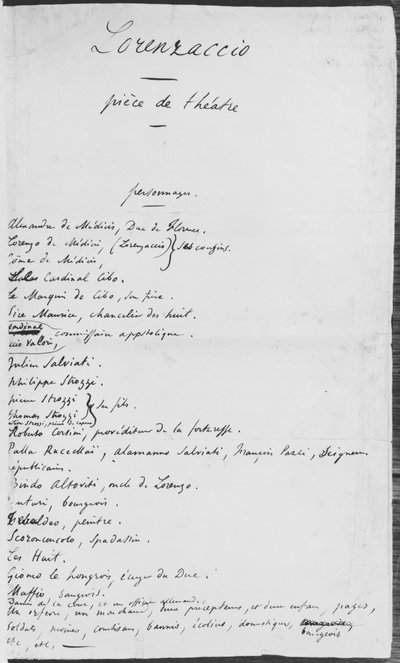 Lorenzaccio
pièce de théatre
personnages.
Alexandre de Médicis, Duc de Florence.
Lorenzo de Médicis, (Lorenzaccio) } Ses cousins.
Côme de Médicis,
Cardinal Cibo.
Le Marquis de Cibo, son frère.
Sire Maurice, chancelier des huit.
cardinal
cio Valori, commissaire apostolique.
Julien Salviati.
philippe Strozzi.
pierre Strozzi } Ses fils.
Thomas Strozzi
Léon Strozzi, prieur de Capoue
Roberto Corsini, provéditeur de la forteresse.
Palla Ruccellaï, Alamanno Salviati, François Pazzi, Seigneurs
républicains.
Bindo Altoviti, oncle de Lorenzo.
enturi, bourgeois.
Tebaldeo, peintre.
Scoronconcolo, Spadassin.
Les Huit.
Giomo le hongrois, écuyer du Duc.
Maffio, bourgeois.
Dames de la cour, et un officier allemand.
Un orfèvre, un marchand, deux précepteurs, et deux enfans, pages,
Soldats, moines, courtisans, bannis, écoliers, domestiques, bourgeois
etc, etc,